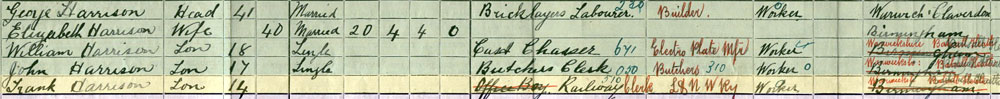 George Harrison Head 41 Married Bricklayers Labourer Builder Worker Warwick Claverdon
Elizabeth Harrison Wife 40 Married 20 4 4 0 Birmingham
William Harrison Son 18 Single Cast Chasser 671 Electro Plate Mfr Worker Warwickshire Balsall Heath Birmingham
John Harrison Son 17 Single Butchers Clerk 050 Butchers 310 Worker Warwickshire Balsall Heath Birmingham
Frank Harrison Son 14 Office Boy Railway Clerk L & N W Ry Worker Balsall Heath Birmingham